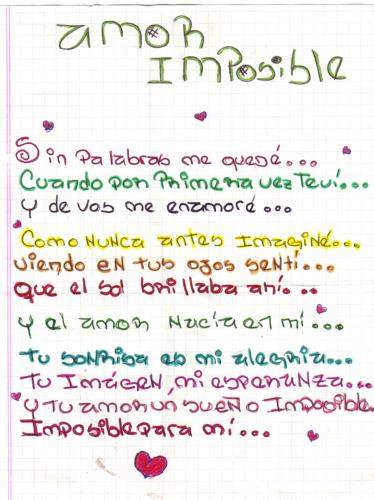 Amor
Imposible
Sin Palabras me quedé...
Cuando por Primera vez Te vi...
Y de vos me enamoré...
Como Nunca antes Imaginé...
viendo en tus ojos sentí...
Que el sol brillaba ahí...
Y el amor Nacía en mí...
Tu sonrisa es mi alegria...
Tu Imágen, mi esperanza...
Y Tu amor un sueño Imposible
Imposible para mí...